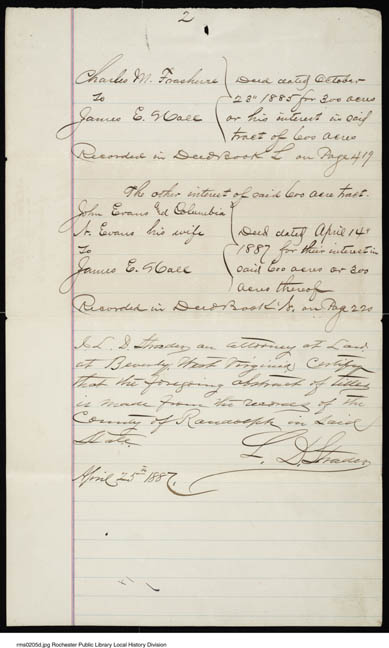 2
Charles M. Fonshure } Deed dated October
To 23d 1885 for 300 acres
James E. Hall or his interest in said
tract of 600 acres
Recorded in Deed Book L on Page 419
The other interest of said 600 acre tract.
John Evans & Columbia
A. Evans his wife } Deed dated April 14th
To 1887 for their interest in
James E. Hall said 600 acres or 300
acres thereof
Recorded in Deed Book on Page 220
I L. D. Strader an attorney at Law
at Beverly West Virginia Certify
that the foregoing abstract of titles
is made from the records of the
County of Randolph in Said
State.
L. D. Strader
April 25th 1887.
rms0205d.jpg Rochester Public Library Local History Division